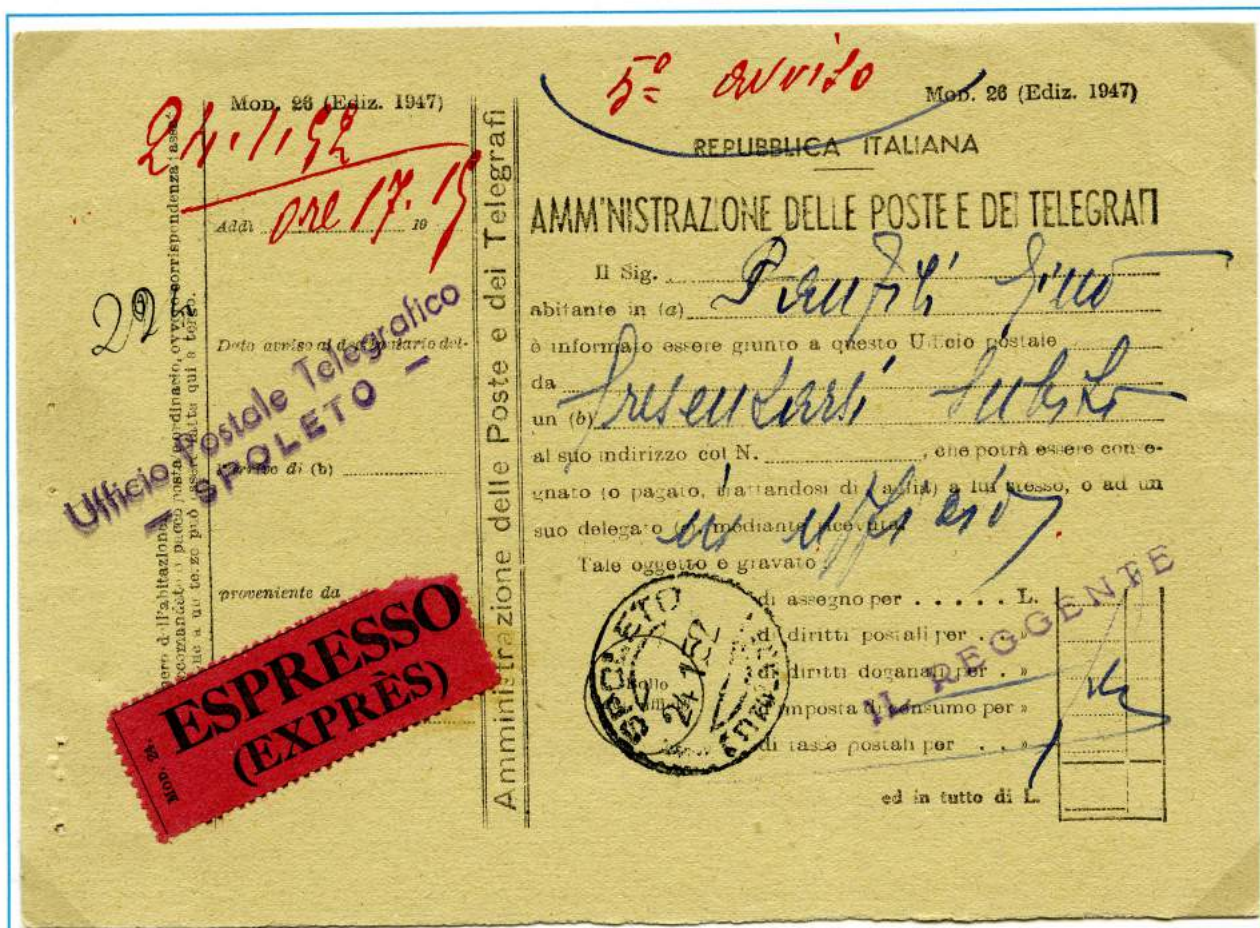 Mod. 26 (Ediz. 1947)
24.1.52
ore 17.15
Addì 19
22
Dato avviso al destinatario del-
Ufficio Postale Telegrafico
- SPOLETO -
l'arrivo di (b)
proveniente da
MOD 24.
ESPRESSO
(EXPRÈS)
Amministrazione delle Poste e dei Telegrafi
5º avviso
Mod. 26 (Ediz. 1947)
REPUBBLICA ITALIANA
AMM'NISTRAZIONE DELLE POSTE E DEI TELEGRAFI
Il Sig. Panfili Gino
abitante in (a)
è informato essere giunto a questo Ufficio postale
da presentarsi subito
un (b)
al suo indirizzo col N. , che potrà essere conse-
gnato (o pagato, trattandosi di vaglia) a lui stesso, o ad un
suo delegato mediante ricevuta.
in ufficio
Tale oggetto è gravato
di assegno per . . . . . L.
di diritti postali per . . »
di diritti doganali per . »
imposta di consumo per »
di tasse postali per . . »
ed in tutto di L.
SPOLETO
24.1.52
IL REGGENTE